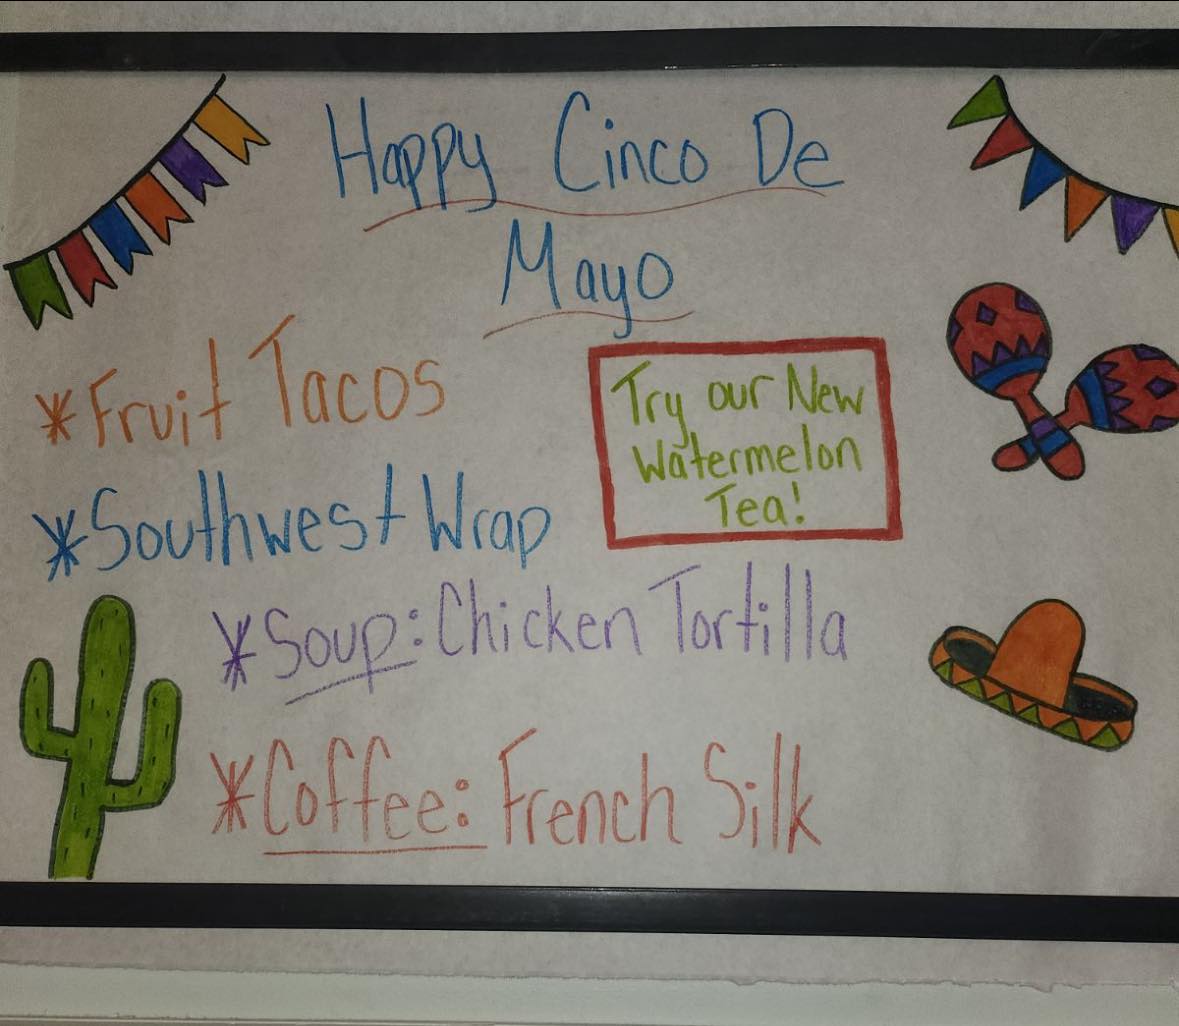 Happy Cinco De
Mayo
*Fruit Tacos
Try our New
Watermelon
Tea!
*Southwest Wrap
*Soup: Chicken Tortilla
*Coffee: French Silk